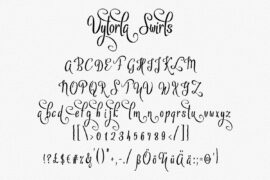 Vytorla Swirls
ABCDEFGHIJKLM
NOPQRSTUVWXYZ
abcdefghijklmnopqrstuvwxyz
[[\>0123456789{|}]